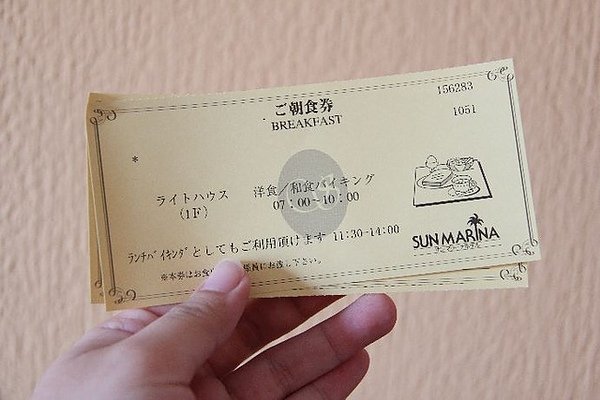 156283
ご朝食券
BREAKFAST
1051
*
ライトハウス
(1F)
洋食／和食バイキング
07:00～10:00
ﾗﾝﾁﾊﾞｲｷﾝｸﾞとしてもご利用頂けます 11:30-14:00
※本券はお食
係員にお渡し下さい。
SUN MARINA